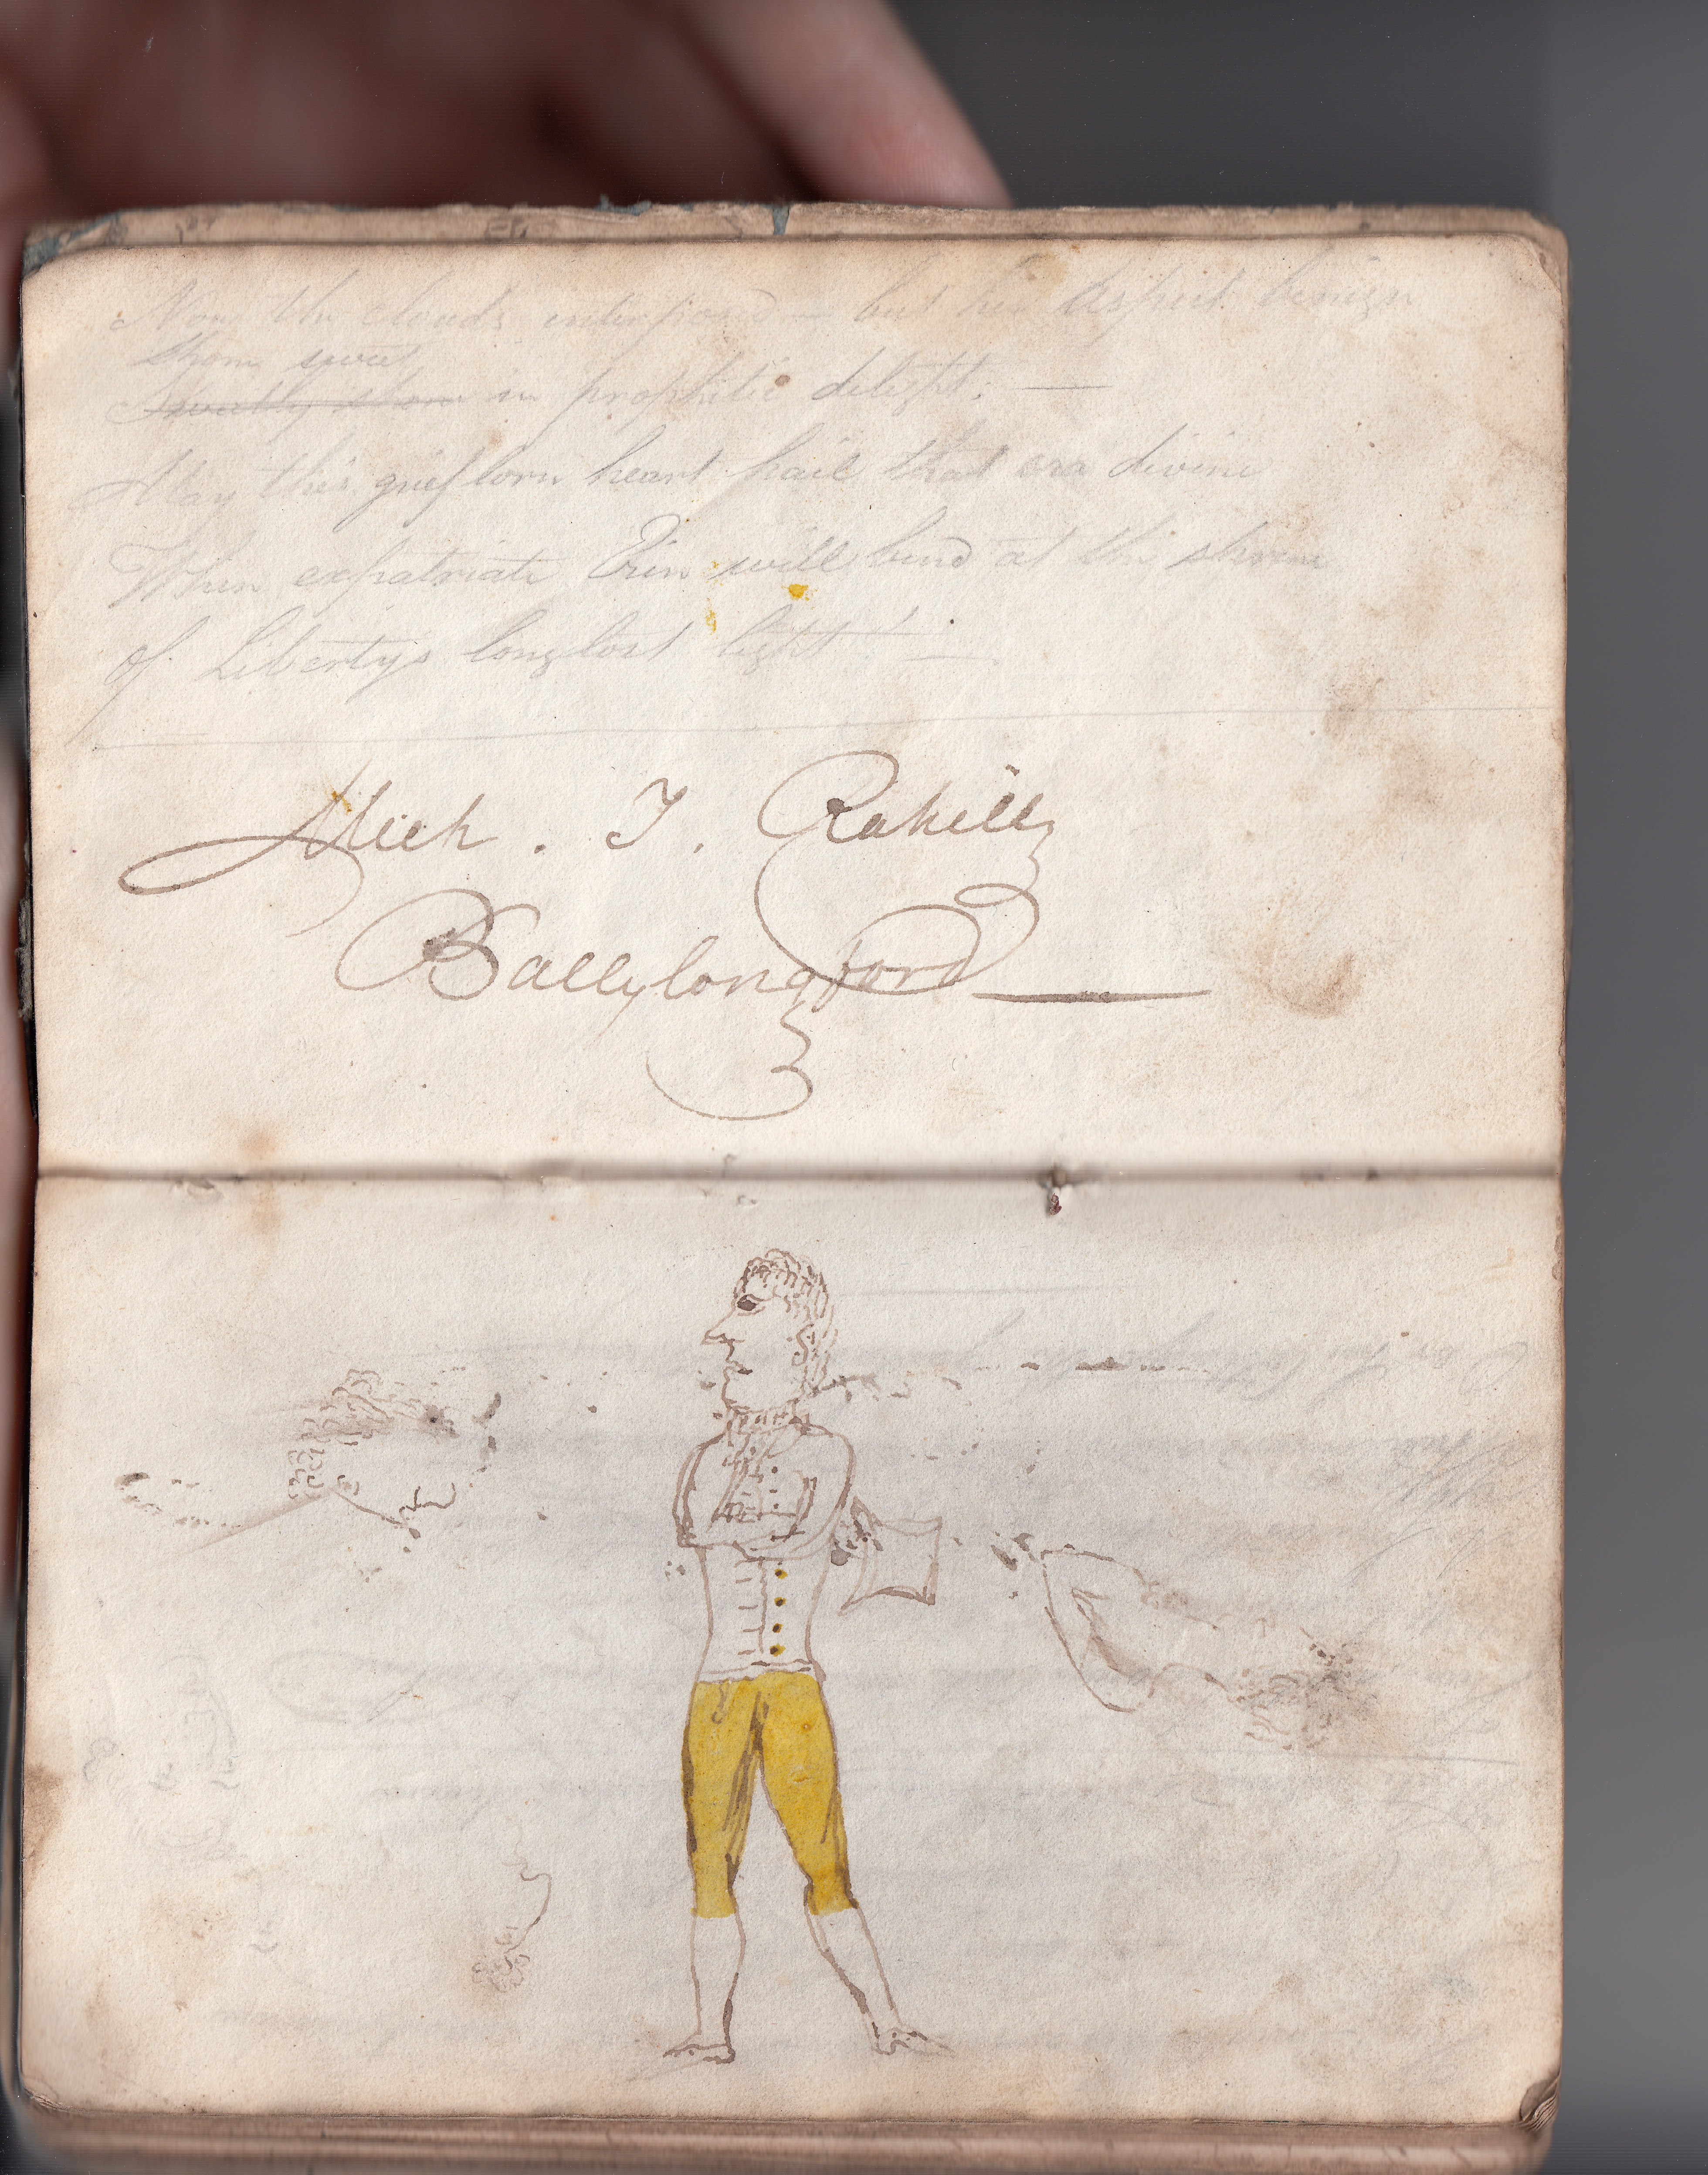 Now the clouds interpose — but her aspect benign
Shone sweet
Sweetly shone in prophetic delight. —
May this grief lorn heart hail that era divine
When expatriate Erin will bend at the shrine
Of Liberty's long lost light! —
Mich . T . Rahilly
Ballylongford